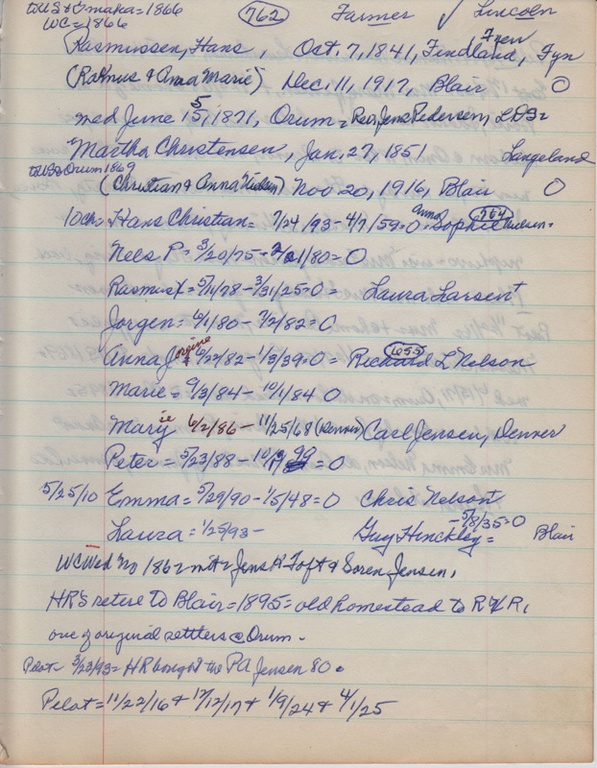 to US & Omaha=1866 762 Farmer ✓ Lincoln
WC=1866
Rasmussen, Hans, Oct. 7, 1841, Findland, Fyen Fyn
(Rasmus & Anna Marie) Dec. 11, 1917, Blair O
med June 15, 1871, Orum = Rev. Jens Pedersen, LDS=
Martha Christensen, Jan. 27, 1851 Langeland
to US & Orum 1869
(Christian & Anna Nielsen) Nov. 20, 1916, Blair O
10 ch= Hans Christian= 7/24/73-4/7/59=0= Anna Sophie Nielsen= 764
Nels P= 3/20/75= 2/21/80=O
Rasmus X= 5/11/78-3/31/25=0= Laura Larsen
Jorgen= 6/1/80-7/2/82=O
Anna Jorgine= 6/22/82-1/3/39=0= Richard L Nelson 655
Marie= 9/3/84-10/1/84 O
Maryie 6/2/86-11/25/68 (Denver) Carl Jensen, Denver
Peter= 5/23/88-10/ 99=0
5/25/10 Emma= 5/29/90-1/5/48=0 Chris Nelson
Laura= 1/25/93- Guy Hinckley= -5/8/35=0 Blair
WC Wed No 186= not & Jens P Toft & Soren Jensen,
HR'S retire to Blair=1895=old homestead to R & R,
one of original settlers @ Orum.
Pilot= 3/23/93= HR bought the PA Jensen 80.
Pilot= 11/22/16 & 12/12/17 & 1/9/24 & 4/1/25